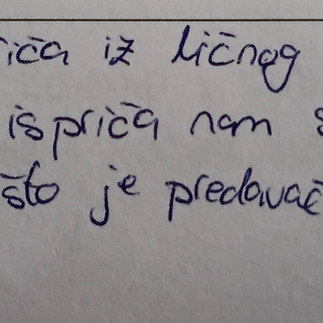 iča iz ličnog
ispriča nam s
što je predavač